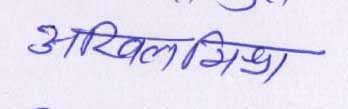 अखिल मिश्रा